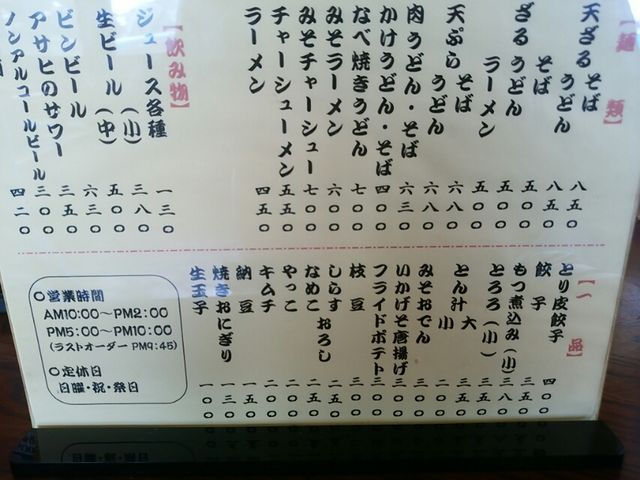 【麺類】
天ざる そば 八五〇
うどん 八五〇
ざる そば 五〇〇
うどん 五〇〇
ラーメン 五〇〇
天ぷら そば 六八〇
うどん 六八〇
肉うどん・そば 六三〇
かけうどん・そば 四〇〇
なべ焼きうどん 七〇〇
みそラーメン 六〇〇
みそチャーシュー 七〇〇
チャーシューメン 五五〇
ラーメン 四五〇
【飲み物】
ジュース各種 一三〇
生ビール(小) 三八〇
(中) 五〇〇
ビンビール 六三〇
アサヒのサワー 三五〇
ノンアルコールビール 三〇〇
四二〇
【一品】
とり皮餃子 四〇〇
餃子 三五〇
もつ煮込み(小) 三八〇
とろろ(小) 三五〇
とん汁 大 三五〇
小 二〇〇
みそおでん 三〇〇
いかげそ唐揚げ 三〇〇
フライドポテト 三〇〇
枝豆 三〇〇
しらす おろし 二五〇
なめこ 二五〇
やっこ 二〇〇
キムチ 二〇〇
納豆 一五〇
焼きおにぎり 一三〇
生玉子 一〇〇
○営業時間
AM10:00～PM2:00
PM5:00～PM10:00
(ラストオーダー PM9:45)
○定休日
日曜・祝・祭日